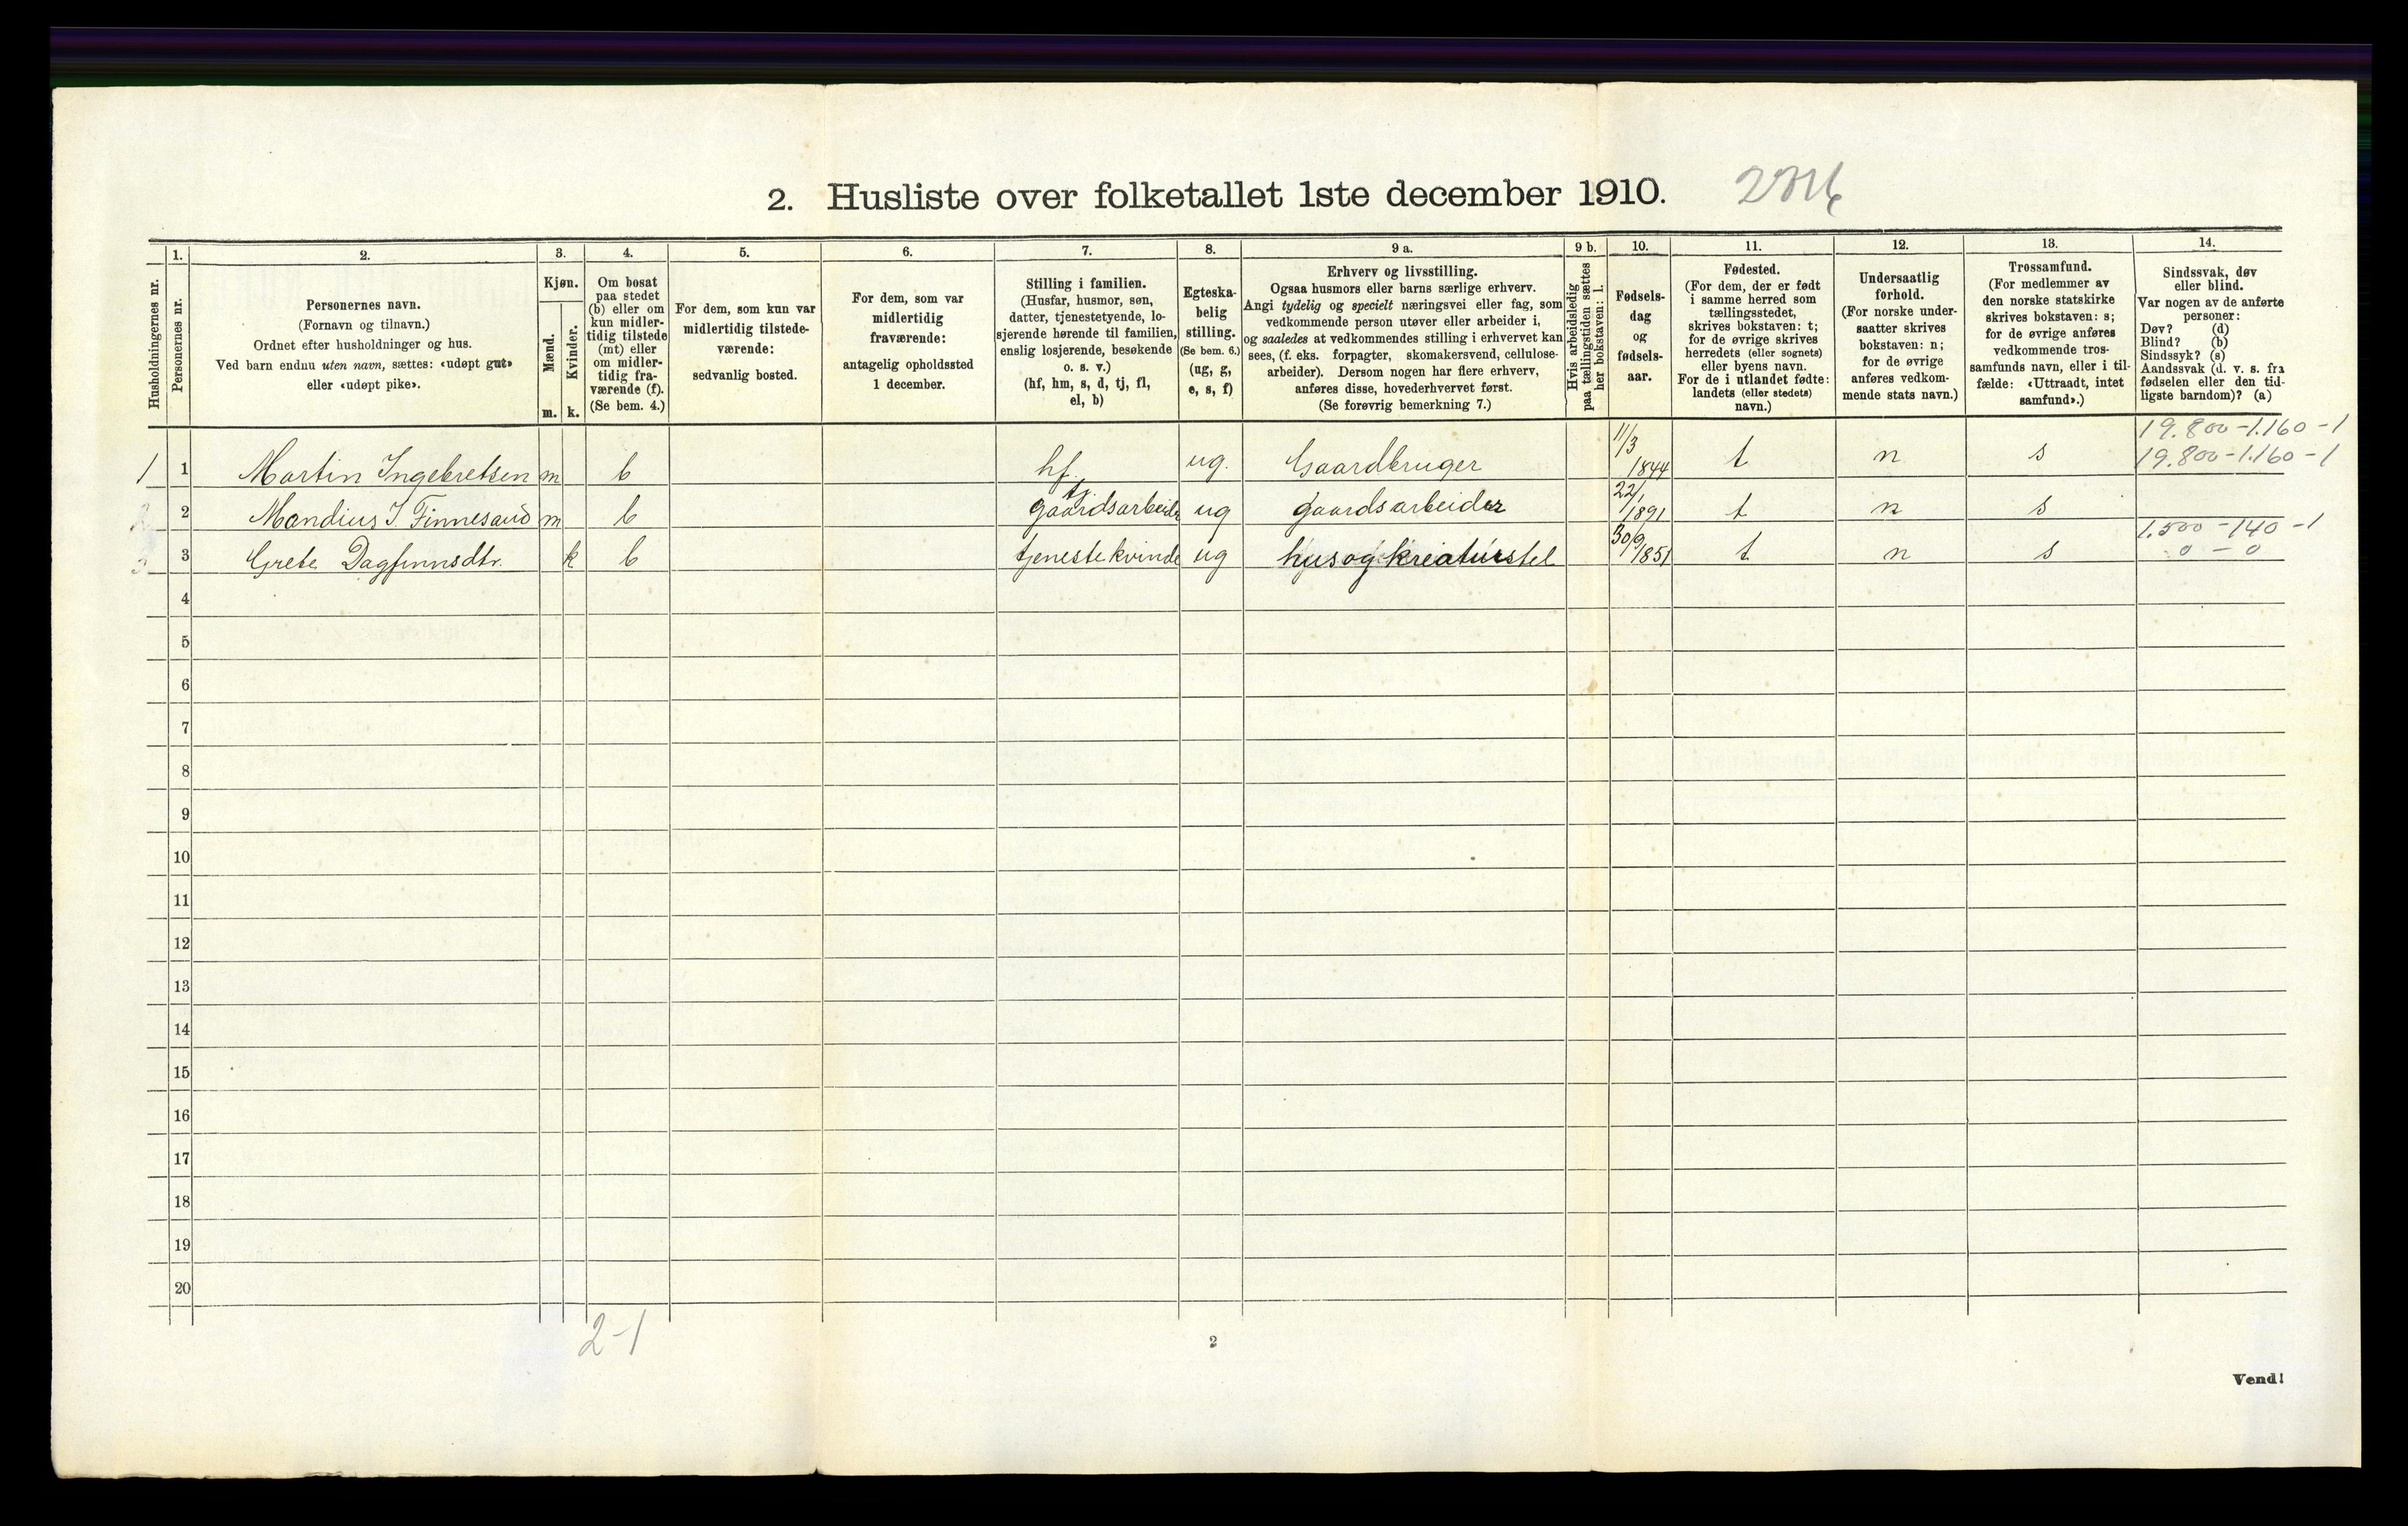 2. Husliste over folketallet 1ste december 1910.
1. 2. 3. 4. 5. 6. 7. 8. 9 a. 9 b. 10. 11. 12. 13. 14.
Husholdningernes nr.
Personernes nr.
Personernes navn.
(Fornavn og tilnavn.)
Ordnet efter husholdninger og hus.
Ved barn endnu uten navn, sættes: «udøpt gut»
eller «udøpt pike».
Kjøn.
Mænd.
Kvinder.
m. k.
Om bosat
paa stedet
(b) eller om
kun midler-
tidig tilstede
(mt) eller
om midler-
tidig fra-
værende (f).
(Se bem. 4.)
For dem, som kun var
midlertidig tilstede-
værende:
sedvanlig bosted.
For dem, som var
midlertidig
fraværende:
antagelig opholdssted
1 december.
Stilling i familien.
(Husfar, husmor, søn,
datter, tjenestetyende, lo-
sjerende hørende til familien,
enslig losjerende, besøkende
o. s. v.)
(hf, hm, s, d, tj, fl,
el, b)
Egteska-
belig
stilling.
(Se bem. 6.)
(ug, g,
e, s, f)
Erhverv og livsstilling.
Ogsaa husmors eller barns særlige erhverv.
Angi tydelig og specielt næringsvei eller fag, som
vedkommende person utøver eller arbeider i,
og saaledes at vedkommendes stilling i erhvervet kan
sees, (f. eks. forpagter, skomakersvend, cellulose-
arbeider). Dersom nogen har flere erhverv,
anføres disse, hovederhvervet først.
(Se forøvrig bemerkning 7.)
Hvis arbeidsledig
paa tællingstiden sættes
her bokstaven: l.
Fødsels-
dag
og
fødsels-
aar.
Fødested.
(For dem, der er født
i samme herred som
tællingsstedet,
skrives bokstaven: t;
for de øvrige skrives
herredets (eller sognets)
eller byens navn.
For de i utlandet fødte:
landets (eller stedets)
navn.)
Undersaatlig
forhold.
(For norske under-
saatter skrives
bokstaven: n;
for de øvrige
anføres vedkom-
mende stats navn.)
Trossamfund.
(For medlemmer av
den norske statskirke
skrives bokstaven: s;
for de øvrige anføres
vedkommende tros-
samfunds navn, eller i til-
fælde: «Uttraadt, intet
samfund».)
Sindssvak, døv
eller blind.
Var nogen av de anførte
personer:
Døv? (d)
Blind? (b)
Sindssyk? (s)
Aandssvak (d. v. s. fra
fødselen eller den tid-
ligste barndom)? (a)
19.800-1.160-1
1 1 Martin Ingebretsen m b hf. ug. Gaardbruger 11/3 1844 t n s 19.800-1.160-1
2 Mandius I. Finnesand m b tj. gaardsarbeider ug gaardsarbeider 22/1 1891 t n s
1.500-140-1
3 Grete Dagfinnsdtr. k b tjenestekvinde ug hus og kreaturstel 30/9 1851 t n s 0-0
4
5
6
7
8
9
10
11
12
13
14
15
16
17
18
19
20
2-1
2
Vend!